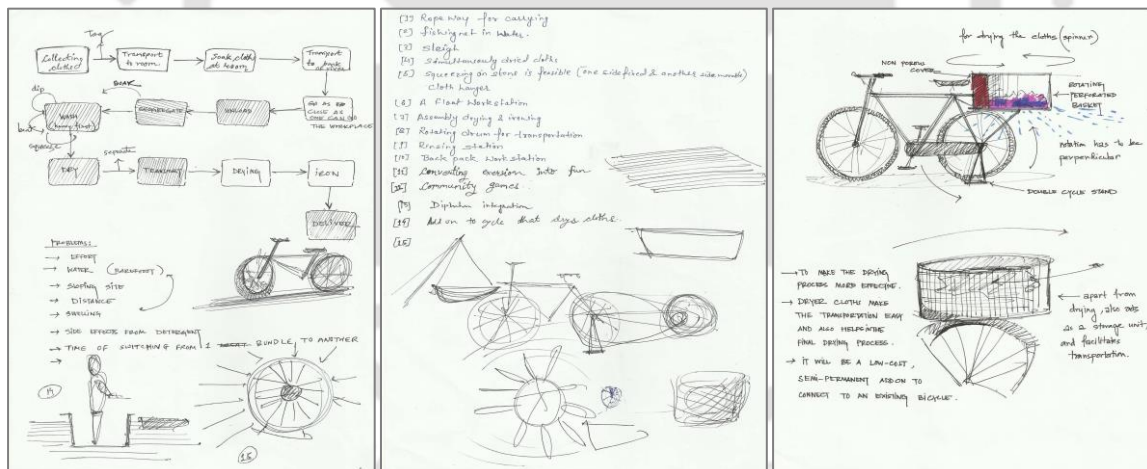 Tag
Collecting clothes
Transport to room.
Soak cloths
Transport to back
SOAK
SEGREGATE
UNLOAD
GO AS
CLOSE AS
ONE CAN TO
THE WORKPLACE
dip
WASH
beat
squeeze
separate
DRY
TRANSPORT
DRYING
IRON
DELIVER
PROBLEMS:
→ EFFORT
→ WATER (BAREFOOT)
→ SLOPING SITE
→ DISTANCE
→ SWELLING
→ SIDE EFFECTS FROM DETERGENT
→ TIME OF SWITCHING FROM 1 BUNDLE TO ANOTHER
[1] Rope way for carrying
[2] fishing net in water.
[3] Sleigh
[4] Simultaneously dried cloths
[5] Squeezing on stone is feasible (one side fixed & another side movable)
Cloth hanger
[6] A Float Workstation
[7] Assembly drying & ironing
[8] Rotating drum for transportation
[9] Rinsing station
[10] Back pack work station
[11] Converting exertion into fun
[12] Community games.
[13] integration
[14] Add on to cycle that drys cloths.
[15]
for drying the cloths (spinner)
NON POROUS
COVER
ROTATING
PERFORATED
BASKET
rotation has to be
perpendicular
DOUBLE CYCLE STAND
→ TO MAKE THE DRYING
PROCESS MORE EFFECTIVE.
→ DRYER CLOTHS MAKE
THE TRANSPORTATION EASY
AND ALSO HELPS IN THE
FINAL DRYING PROCESS.
→ IT WILL BE A LOW-COST,
SEMI-PERMANENT ADD-ON TO
CONNECT TO AN EXISTING BICYCLE.
apart from
drying, also acts
as a storage unit
and facilitates
transportation.